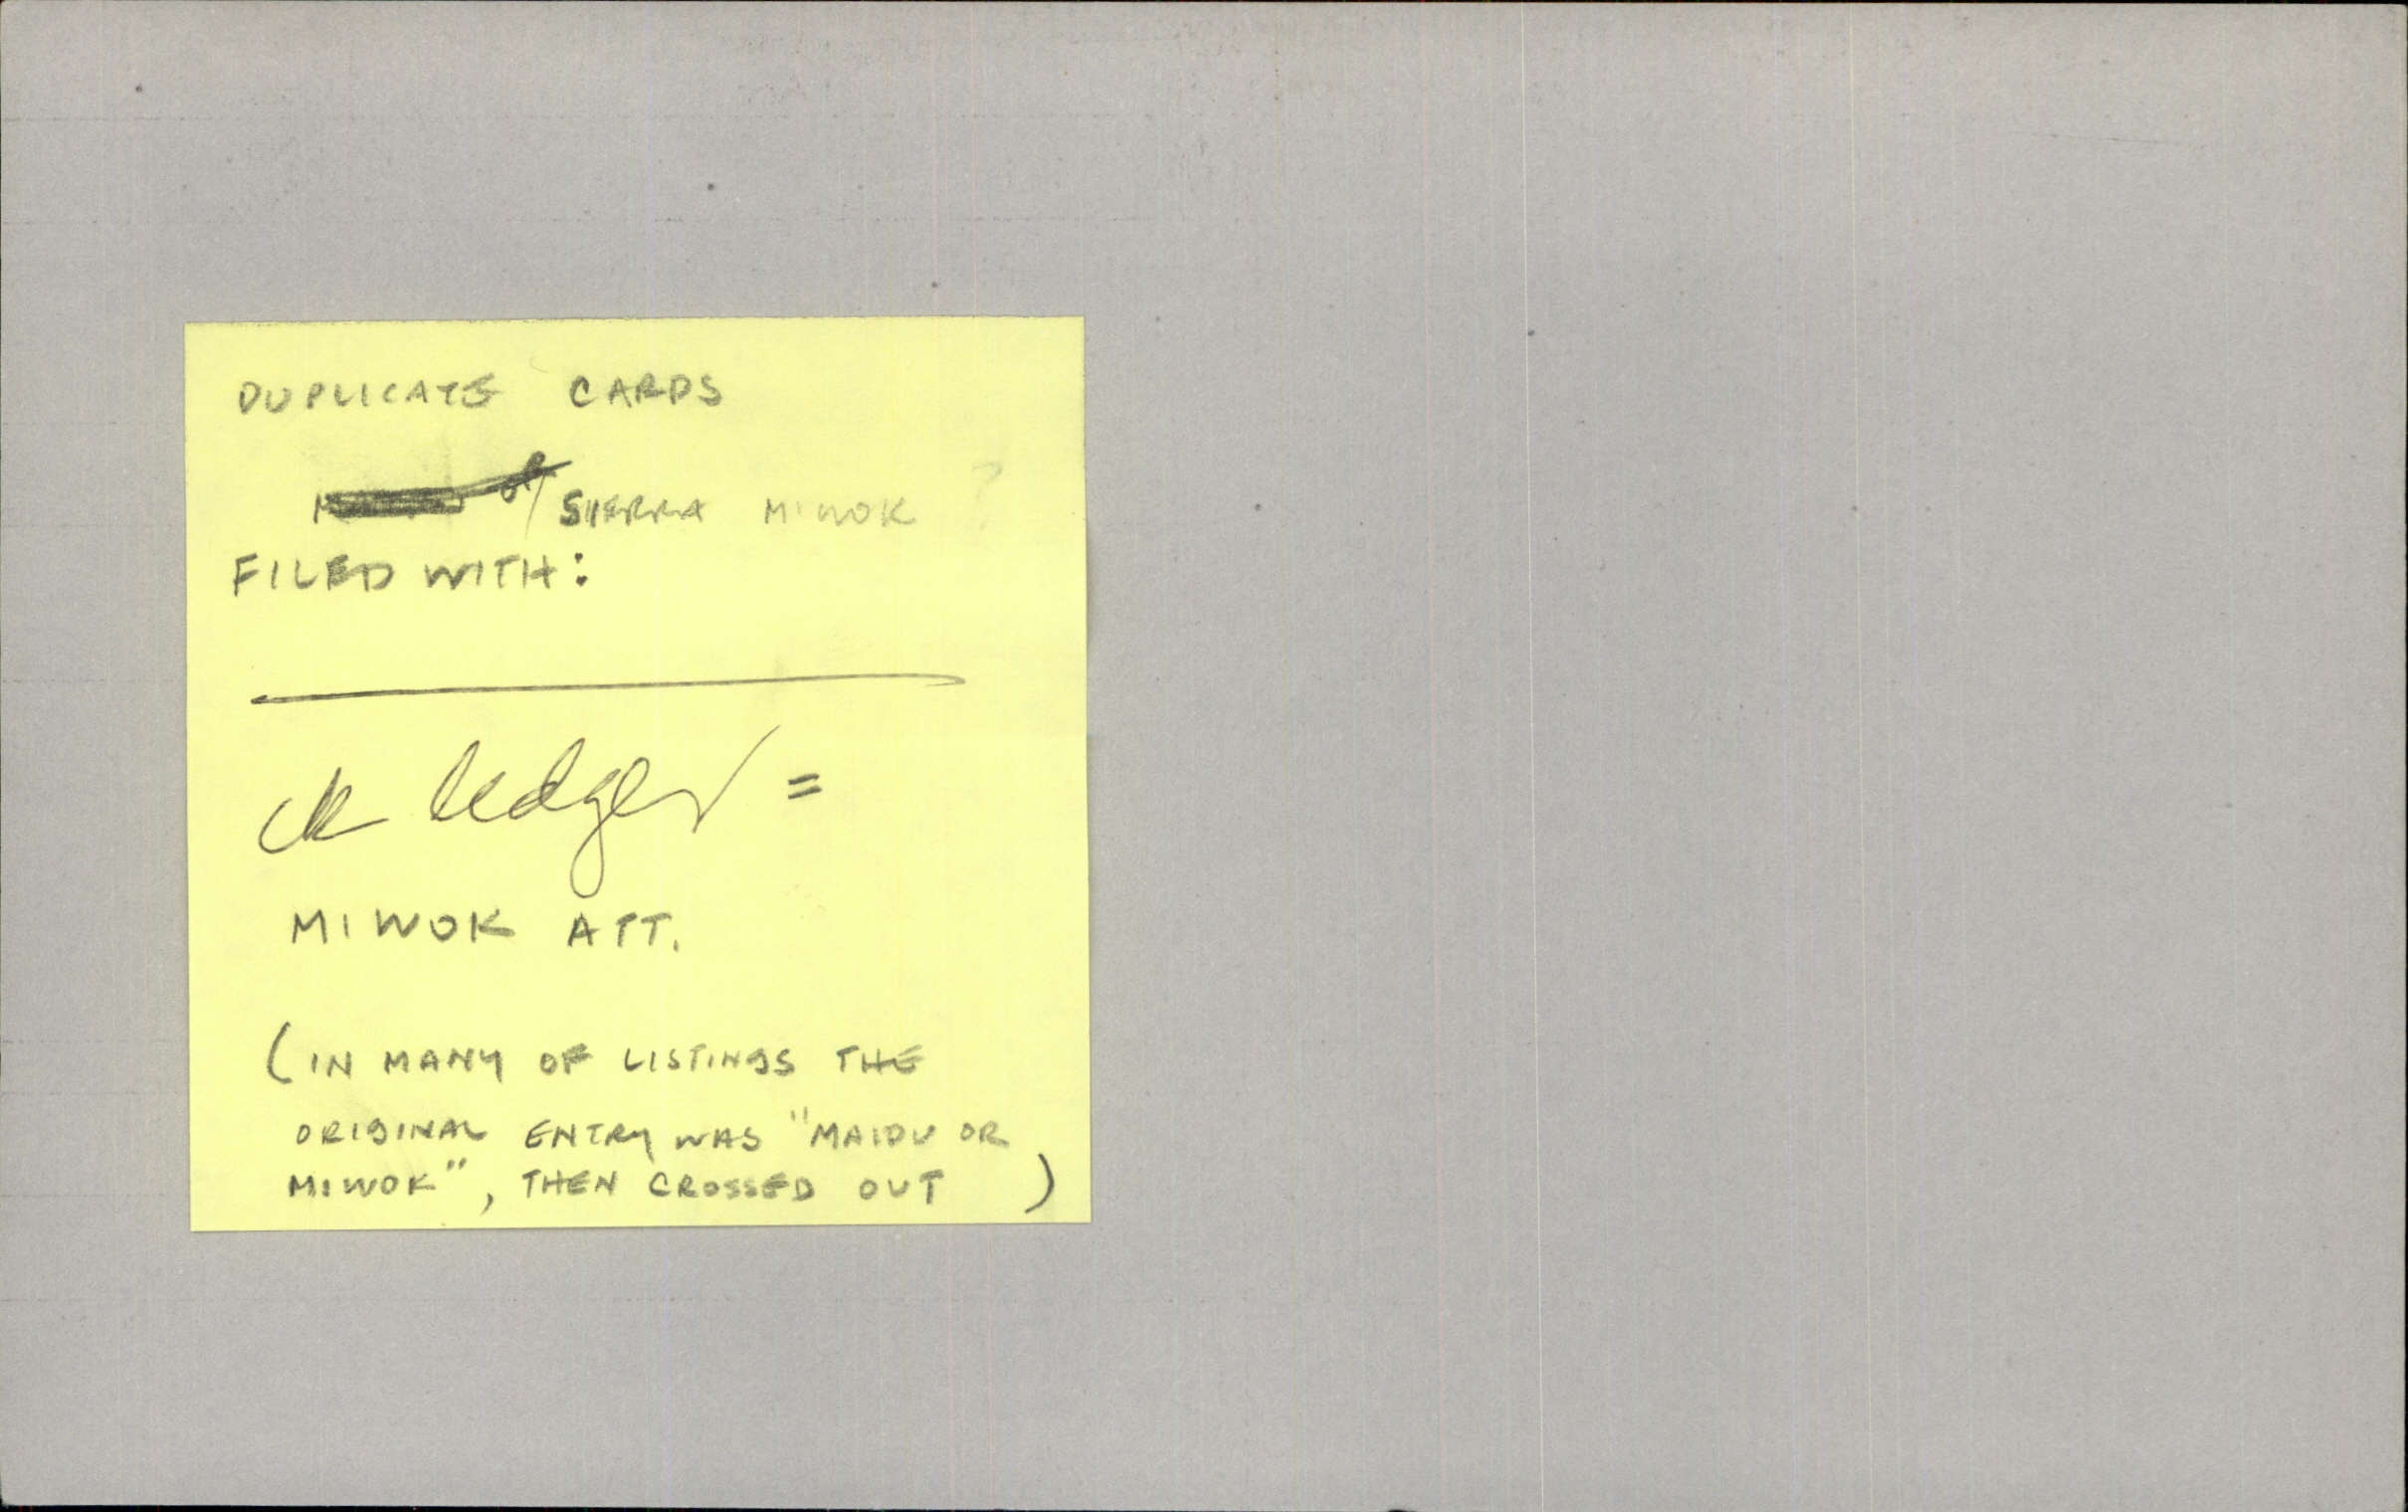 DUPLICATE CARDS
or SIERRA MIWOK ?
FILED WITH:
ck ledger =
MIWOK ATT.
(IN MANY OF LISTINGS THE
ORIGINAL ENTRY WAS "MAIDU OR
MIWOK", THEN CROSSED OUT )